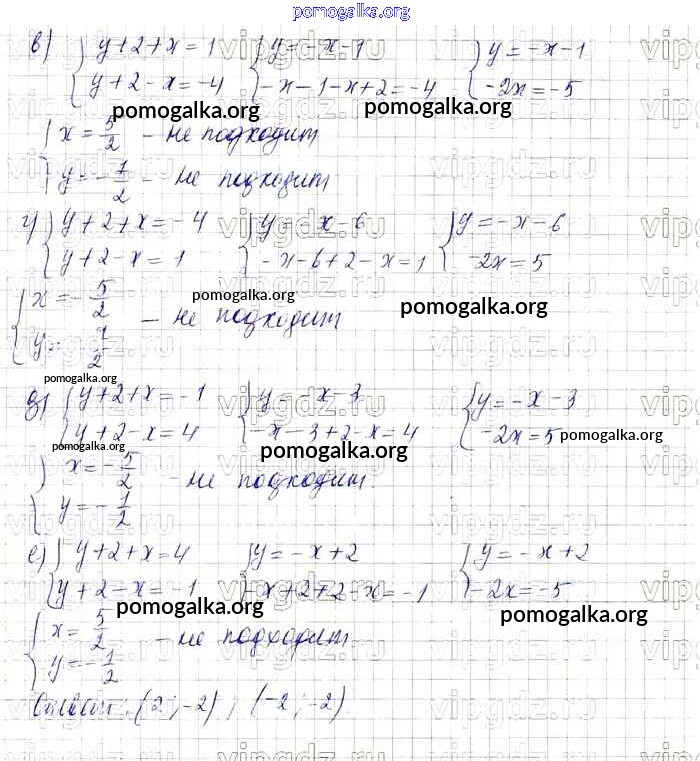 pomogalka.org
в) { y+2+x=1 { y=-x-1 { y=-x-1
{ y+2-x=-4 { -x-1-x+2=-4 { -2x=-5
pomogalka.org pomogalka.org
{ x=5/2 - не подходит
{ y=-7/2 - не подходит
г) { y+2+x=-4 { y=-x-6 { y=-x-6
{ y+2-x=1 { -x-6+2-x=1 { -2x=5
{ x=-5/2 pomogalka.org pomogalka.org
{ y=-7/2 - не подходит
pomogalka.org
д) { y+2+x=-1 { y=-x-3 { y=-x-3
{ y+2-x=4 { -x-3+2-x=4 { -2x=5 pomogalka.org
pomogalka.org pomogalka.org
{ x=-5/2 - не подходит.
{ y=-1/2
е) { y+2+x=4 { y=-x+2 { y=-x+2
{ y+2-x=-1 { -x+2+2-x=-1 { -2x=-5
pomogalka.org pomogalka.org
{ x=5/2 - не подходит
{ y=-1/2
Ответ: (2;-2); (-2;-2).
vipgdz.ru